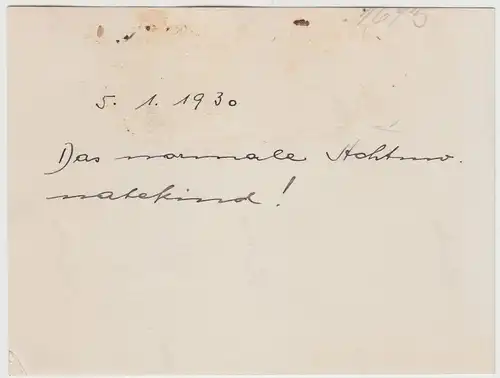 5. 1. 1930
Das normale Achtmo.
natekind!